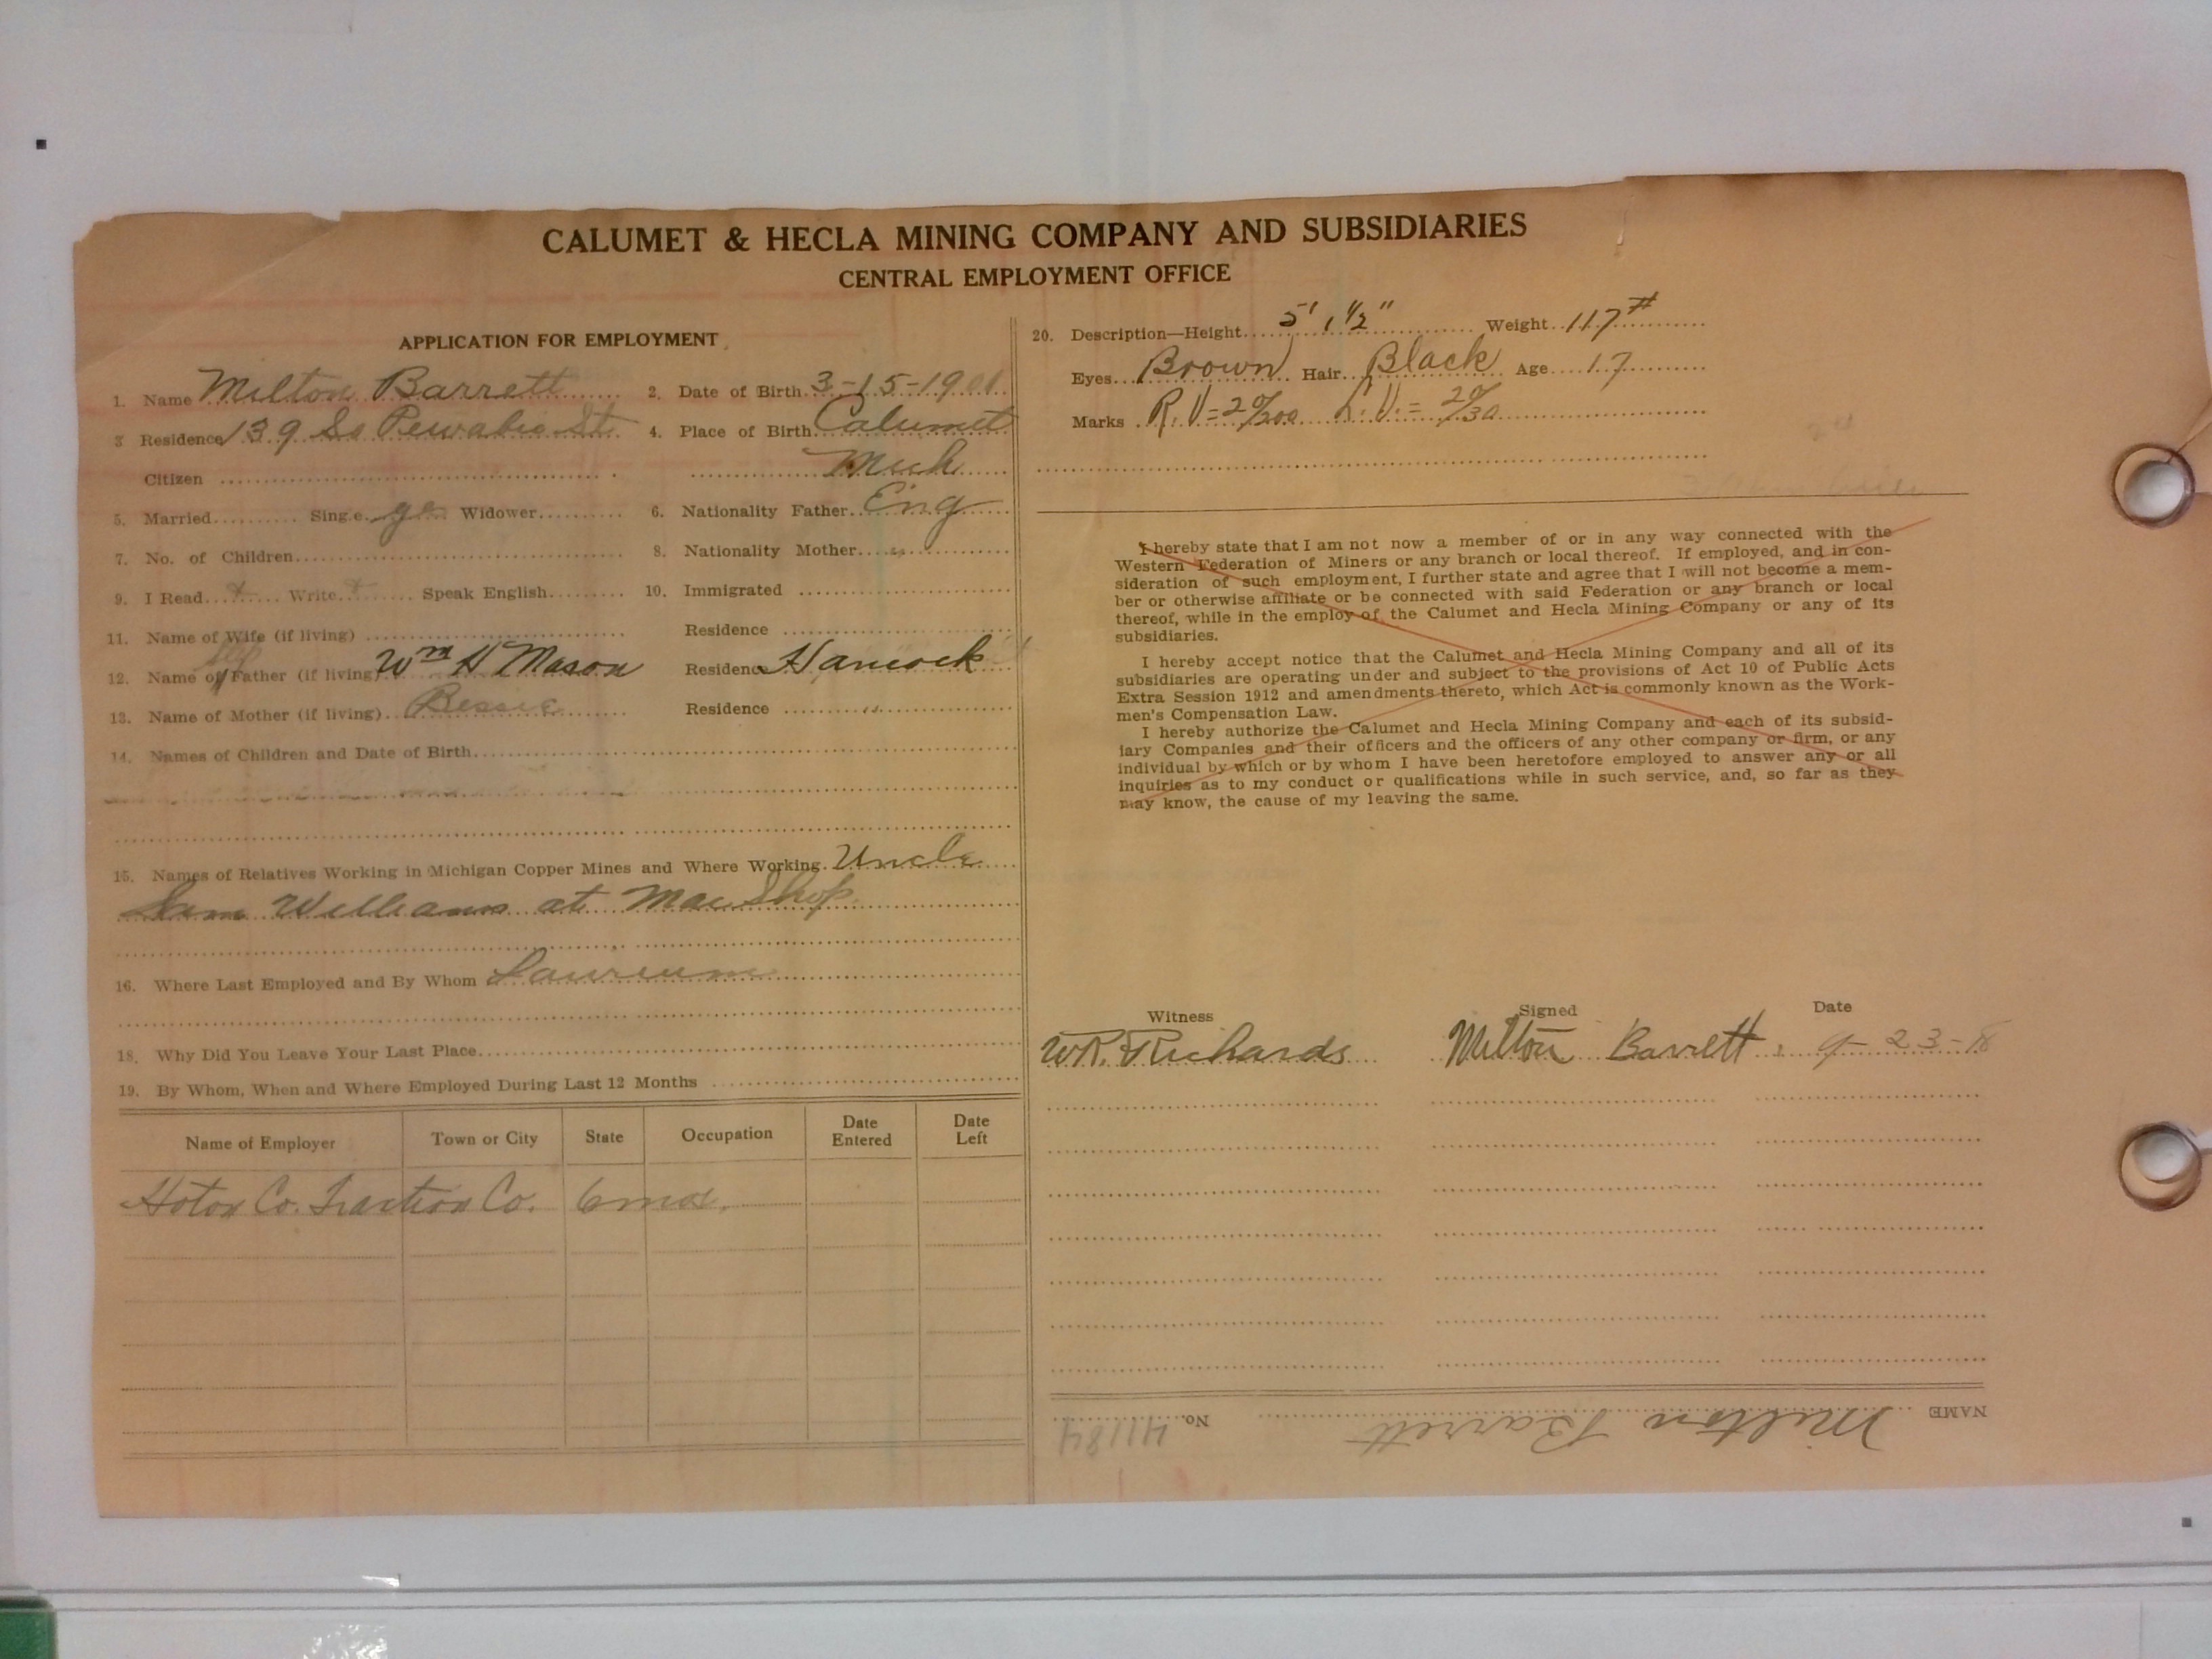 CALUMET & HECLA MINING COMPANY AND SUBSIDIARIES
CENTRAL EMPLOYMENT OFFICE
APPLICATION FOR EMPLOYMENT
1. Name Milton Barrett 2. Date of Birth 3-15-1901
3 Residence 139 So Pewabic St. 4. Place of Birth Calumet
Citizen Mich
5. Married Single Widower 6. Nationality Father Eng
7. No. of Children 8. Nationality Mother "
9. I Read x Write x Speak English 10. Immigrated
11. Name of Wife (if living) Residence
Step
12. Name of Father (if living) Wm H Mason Residence Hancock
13. Name of Mother (if living) Bessie Residence "
14. Names of Children and Date of Birth
15. Names of Relatives Working in Michigan Copper Mines and Where Working Uncle
Sam Williams at Mac Shop
16. Where Last Employed and By Whom Laurium
18. Why Did You Leave Your Last Place
19. By Whom, When and Where Employed During Last 12 Months
Name of Employer Town or City State Occupation Date Entered Date Left
Hoton Co. Traction Co. 6 mos.
20. Description—Height 5' 1½" Weight 117#
Eyes Brown Hair Black Age 17
Marks R.V=20/200 L.V.=20/30
I hereby state that I am not now a member of or in any way connected with the
Western Federation of Miners or any branch or local thereof. If employed, and in con-
sideration of such employment, I further state and agree that I will not become a mem-
ber or otherwise affiliate or be connected with said Federation or any branch or local
thereof, while in the employ of the Calumet and Hecla Mining Company or any of its
subsidiaries.
I hereby accept notice that the Calumet and Hecla Mining Company and all of its
subsidiaries are operating under and subject to the provisions of Act 10 of Public Acts
Extra Session 1912 and amendments thereto, which Act is commonly known as the Work-
men's Compensation Law.
I hereby authorize the Calumet and Hecla Mining Company and each of its subsid-
iary Companies and their officers and the officers of any other company or firm, or any
individual by which or by whom I have been heretofore employed to answer any or all
inquiries as to my conduct or qualifications while in such service, and, so far as they
may know, the cause of my leaving the same.
Witness Signed Date
W.R. Richards Milton Barrett 9-23-18
NAME Milton Barrett No. 41184